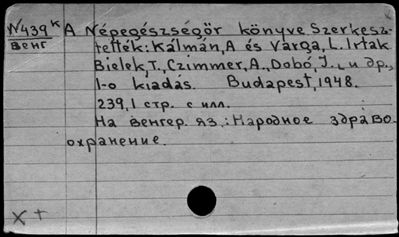 N439 к А Népegészségőr könyve Szerkesz-
Венг tették: Kálmán, A és Varga, L. Irták
Bielek, T., Czimmer, A., Dobó, J., и др.,
1-o kiadás. Budapest, 1948.
239,1 стр. с илл.
На венгер. яз.: Народное здраво-
охранение.
X +